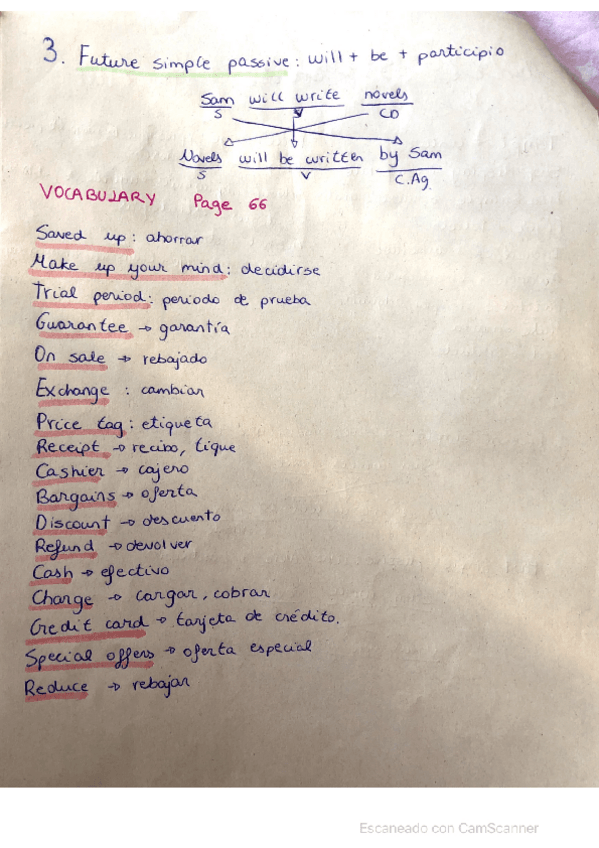 3. Future simple passive: will + be + participio
Sam will write novels
S V CD
Novels will be written by Sam
S V C.Ag
VOCABULARY Page 66
Saved up: ahorrar
Make up your mind: decidirse
Trial period: periodo de prueba
Guarantee → garantía
On sale → rebajado
Exchange : cambiar
Price tag: etiqueta
Receipt → recibo, tique
Cashier → cajero
Bargains → oferta
Discount → descuento
Refund → devolver
Cash → efectivo
Charge → cargar, cobrar
Credit card → tarjeta de crédito.
Special offers → oferta especial
Reduce → rebajar
Escaneado con CamScanner